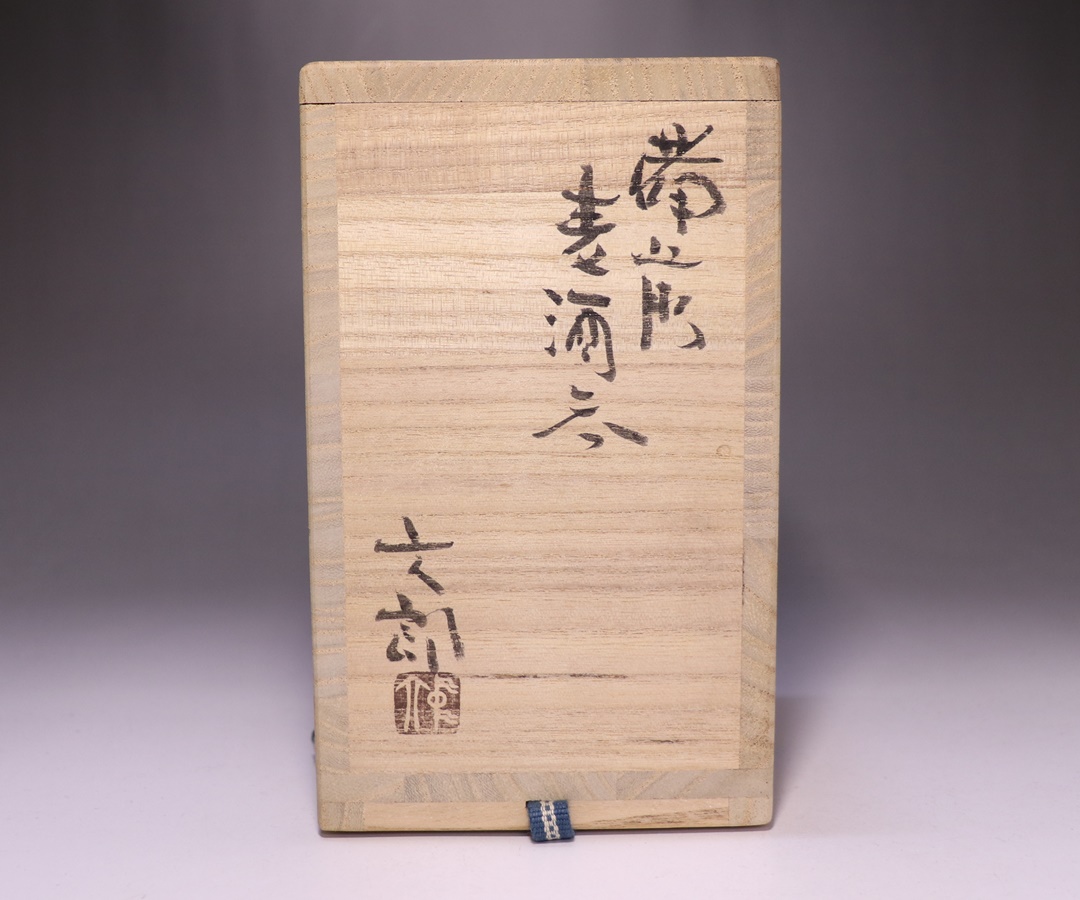 備前
麦酒呑
文郎